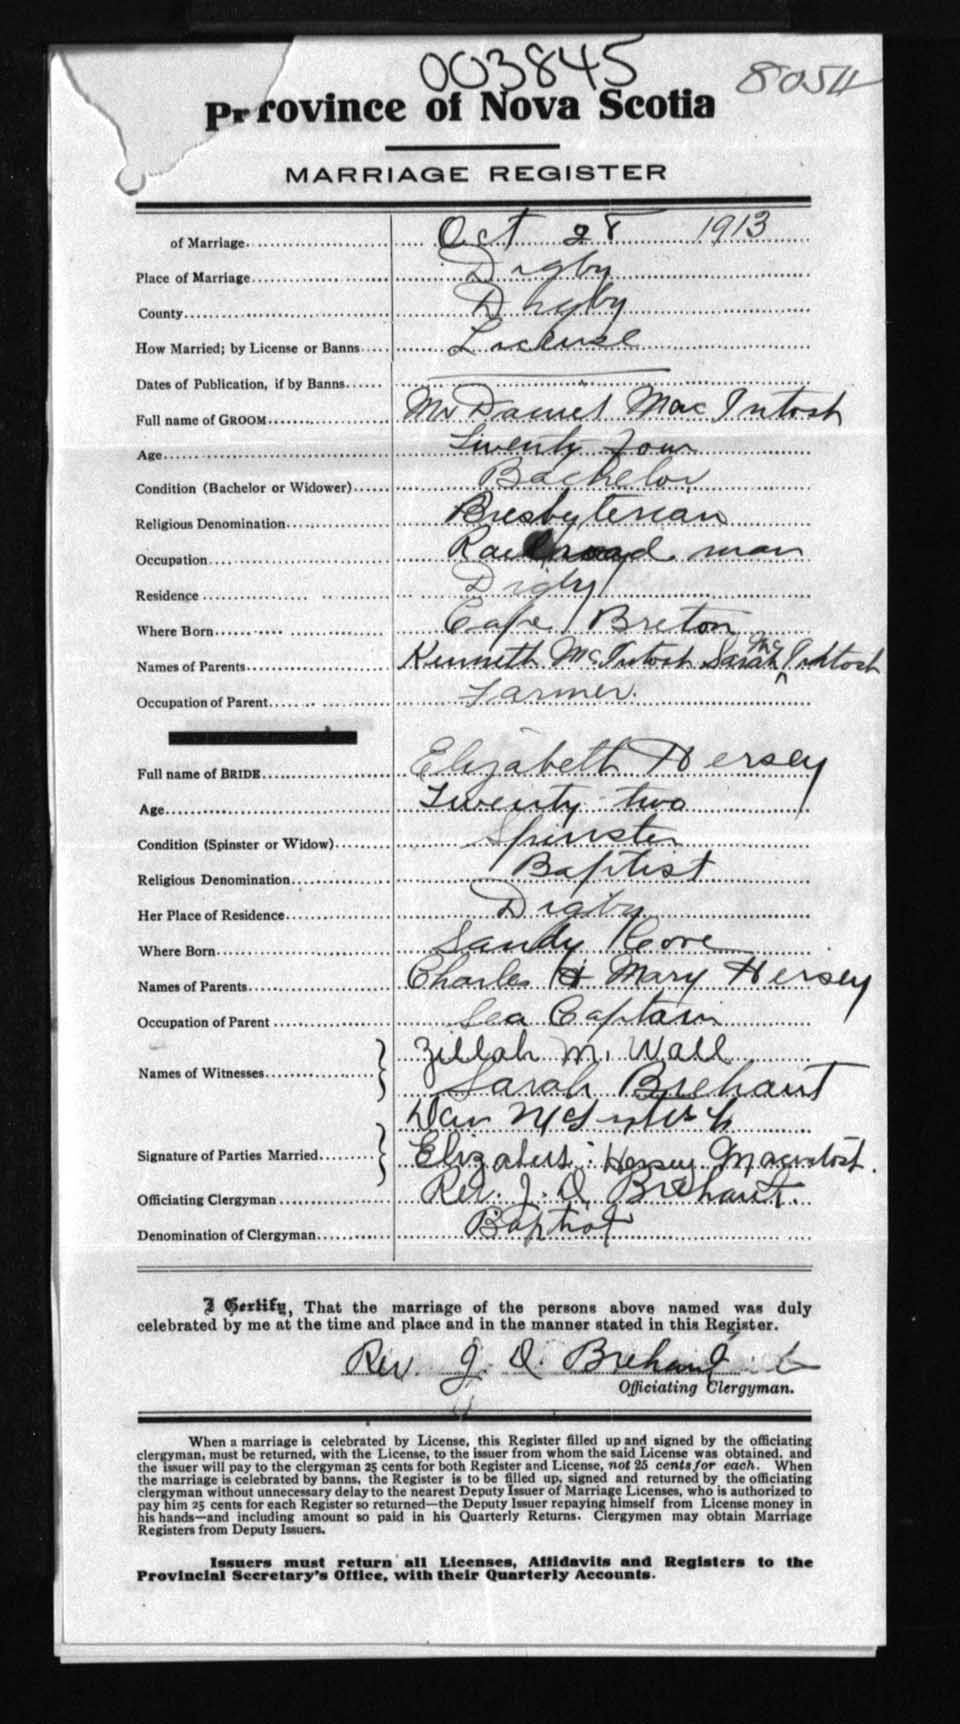 003845
8054
Province of Nova Scotia
MARRIAGE REGISTER
of Marriage Oct 28 1913
Place of Marriage Digby
County Digby
How Married; by License or Banns License
Dates of Publication, if by Banns
Full name of GROOM Mr Daniel MacIntosh
Age Twenty four
Condition (Bachelor or Widower) Bachelor
Religious Denomination Presbyterian
Occupation Railroad man
Residence Digby
Where Born Cape Breton
Names of Parents Kenneth McIntosh Sarah McIntosh
Occupation of Parent Farmer.
Full name of BRIDE Elizabeth Hersey
Age Twenty two
Condition (Spinster or Widow) Spinster
Religious Denomination Baptist
Her Place of Residence Digby
Where Born Sandy Cove
Names of Parents Charles H Mary Hersey
Occupation of Parent Sea Captain
Names of Witnesses Zillah M. Wall
Sarah Brehaut
Signature of Parties Married Dan McIntosh
Elizabeth Hersey Macintosh.
Officiating Clergyman Rev. J. D. Brehaut.
Denomination of Clergyman Baptist
I Certify, That the marriage of the persons above named was duly
celebrated by me at the time and place and in the manner stated in this Register.
Rev. J. D. Brehaut
Officiating Clergyman.
When a marriage is celebrated by License, this Register filled up and signed by the officiating
clergyman, must be returned, with the License, to the issuer from whom the said License was obtained, and
the issuer will pay to the clergyman 25 cents for both Register and License, not 25 cents for each. When
the marriage is celebrated by banns, the Register is to be filled up, signed and returned by the officiating
clergyman without unnecessary delay to the nearest Deputy Issuer of Marriage Licenses, who is authorized to
pay him 25 cents for each Register so returned—the Deputy Issuer repaying himself from License money in
his hands—and including amount so paid in his Quarterly Returns. Clergymen may obtain Marriage
Registers from Deputy Issuers.
Issuers must return all Licenses, Affidavits and Registers to the
Provincial Secretary's Office, with their Quarterly Accounts.